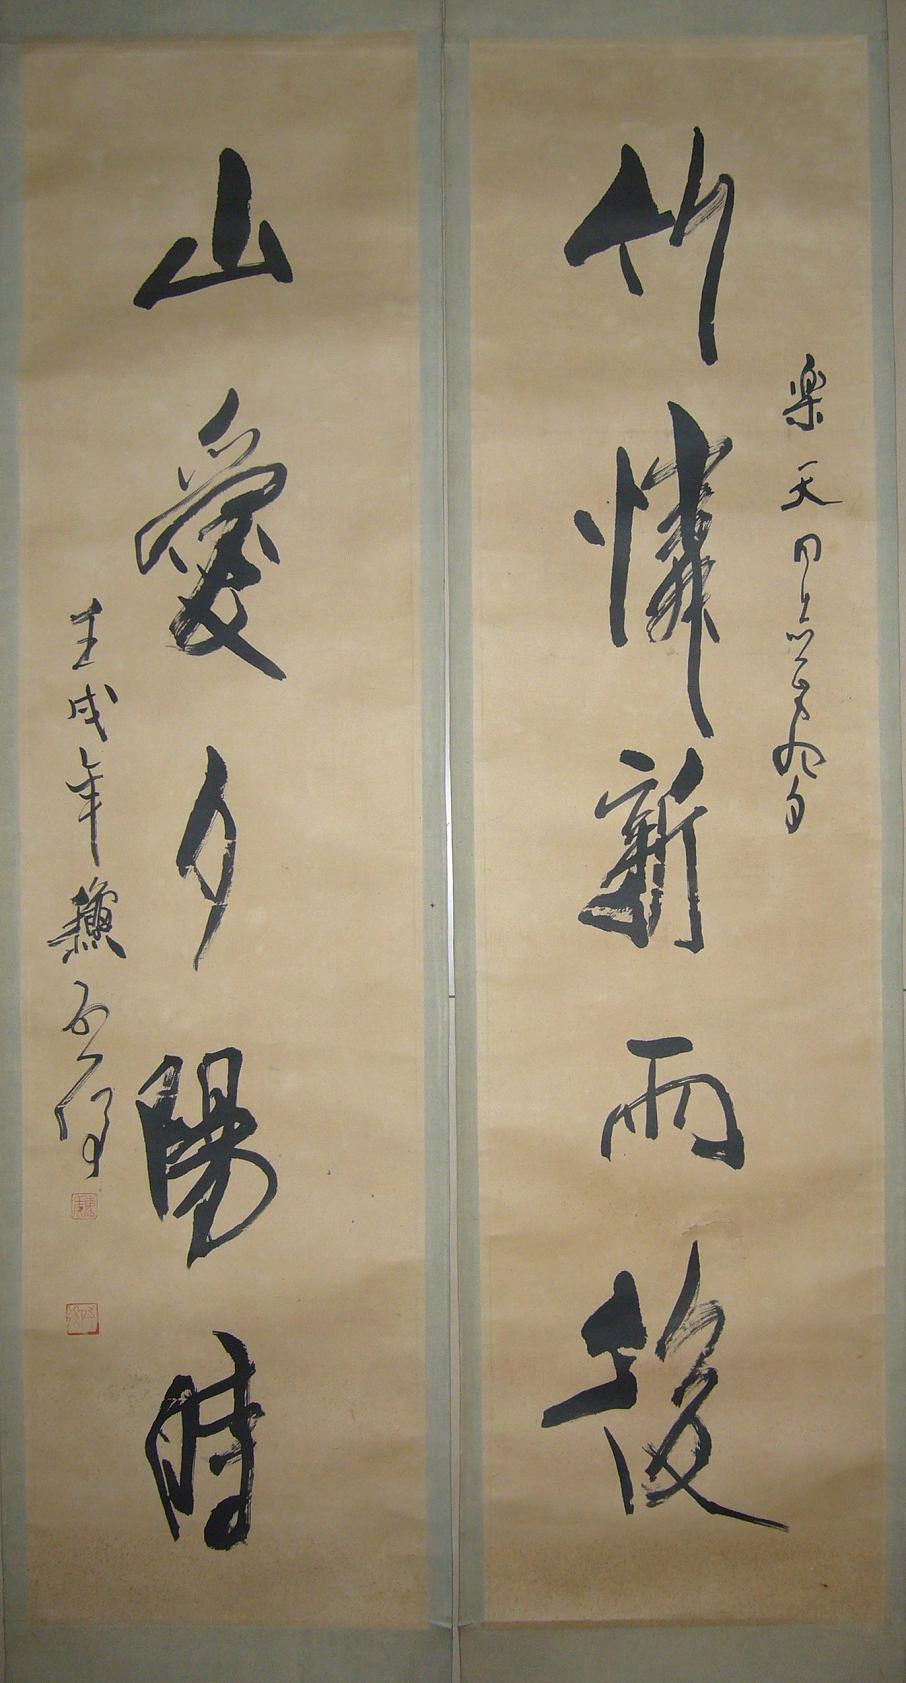 竹憐新雨後
樂天同志
山愛夕陽時
壬戌年